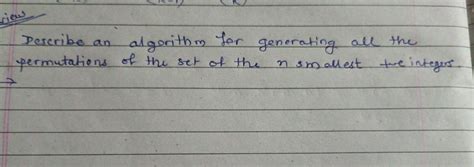 view
Describe an algorithm for generating all the
permutations of the set of the n smallest +ve integers
→